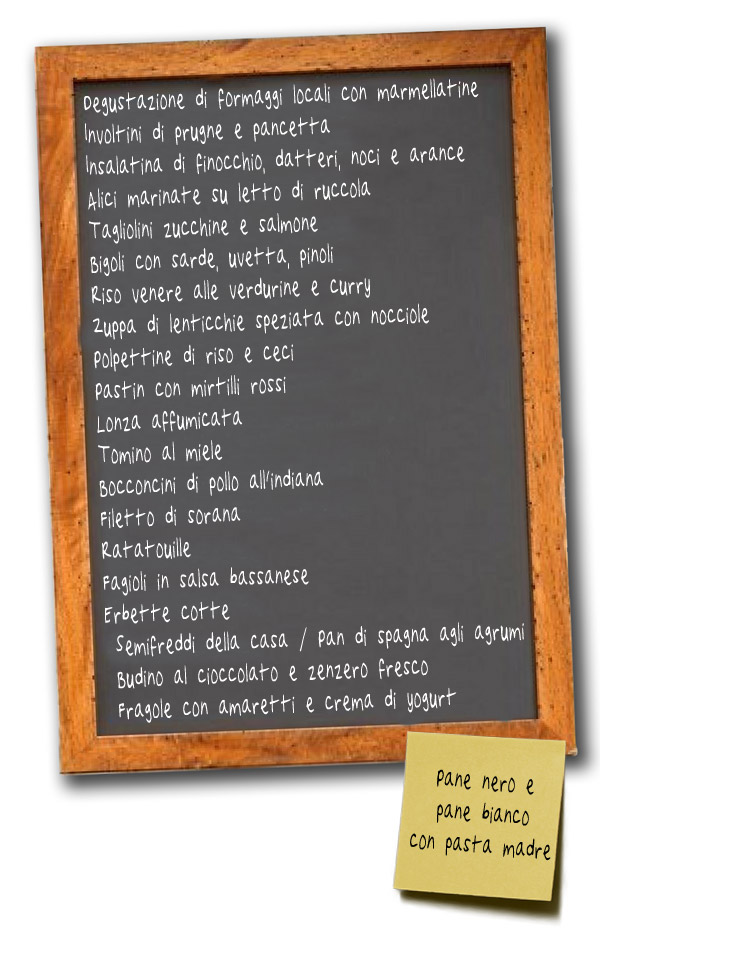 Degustazione di formaggi locali con marmellatine
Involtini di prugne e pancetta
Insalatina di finocchio, datteri, noci e arance
Alici marinate su letto di ruccola
Tagliolini zucchine e salmone
Bigoli con sarde, uvetta, pinoli
Riso venere alle verdurine e curry
Zuppa di lenticchie speziata con nocciole
Polpettine di riso e ceci
Pastin con mirtilli rossi
Lonza affumicata
Tomino al miele
Bocconcini di pollo all'indiana
Filetto di sorana
Ratatouille
Fagioli in salsa bassanese
Erbette cotte
Semifreddi della casa / Pan di spagna agli agrumi
Budino al cioccolato e zenzero fresco
Fragole con amaretti e crema di yogurt
Pane nero e
pane bianco
con pasta madre